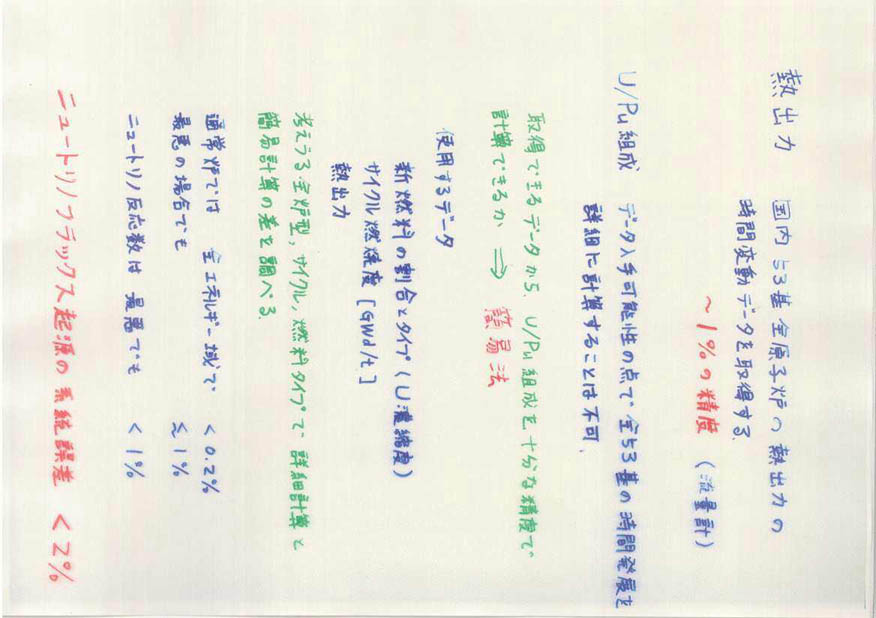 熱出力　国内53基全原子炉の熱出力の
時間変動データを取得する。
～1%の精度　(流量計)
U/Pu組成　データ入手可能性の点で全53基の時間発展を
詳細に計算することは不可、
取得できるデータから、U/Pu組成を十分な精度で
計算できるか ⇒ 簡易法
使用するデータ
新燃料の割合とタイプ(U濃縮度)
サイクル燃焼度 [GWd/t]
熱出力
考えうる全炉型,サイクル,燃料タイプで 詳細計算と
簡易計算の差を調べる。
通常炉では　全エネルギー域で　< 0.2%
最悪の場合でも　≲ 1%
ニュートリノ反応数は 最悪でも　< 1%
ニュートリノフラックス起源の系統誤差　< 2%